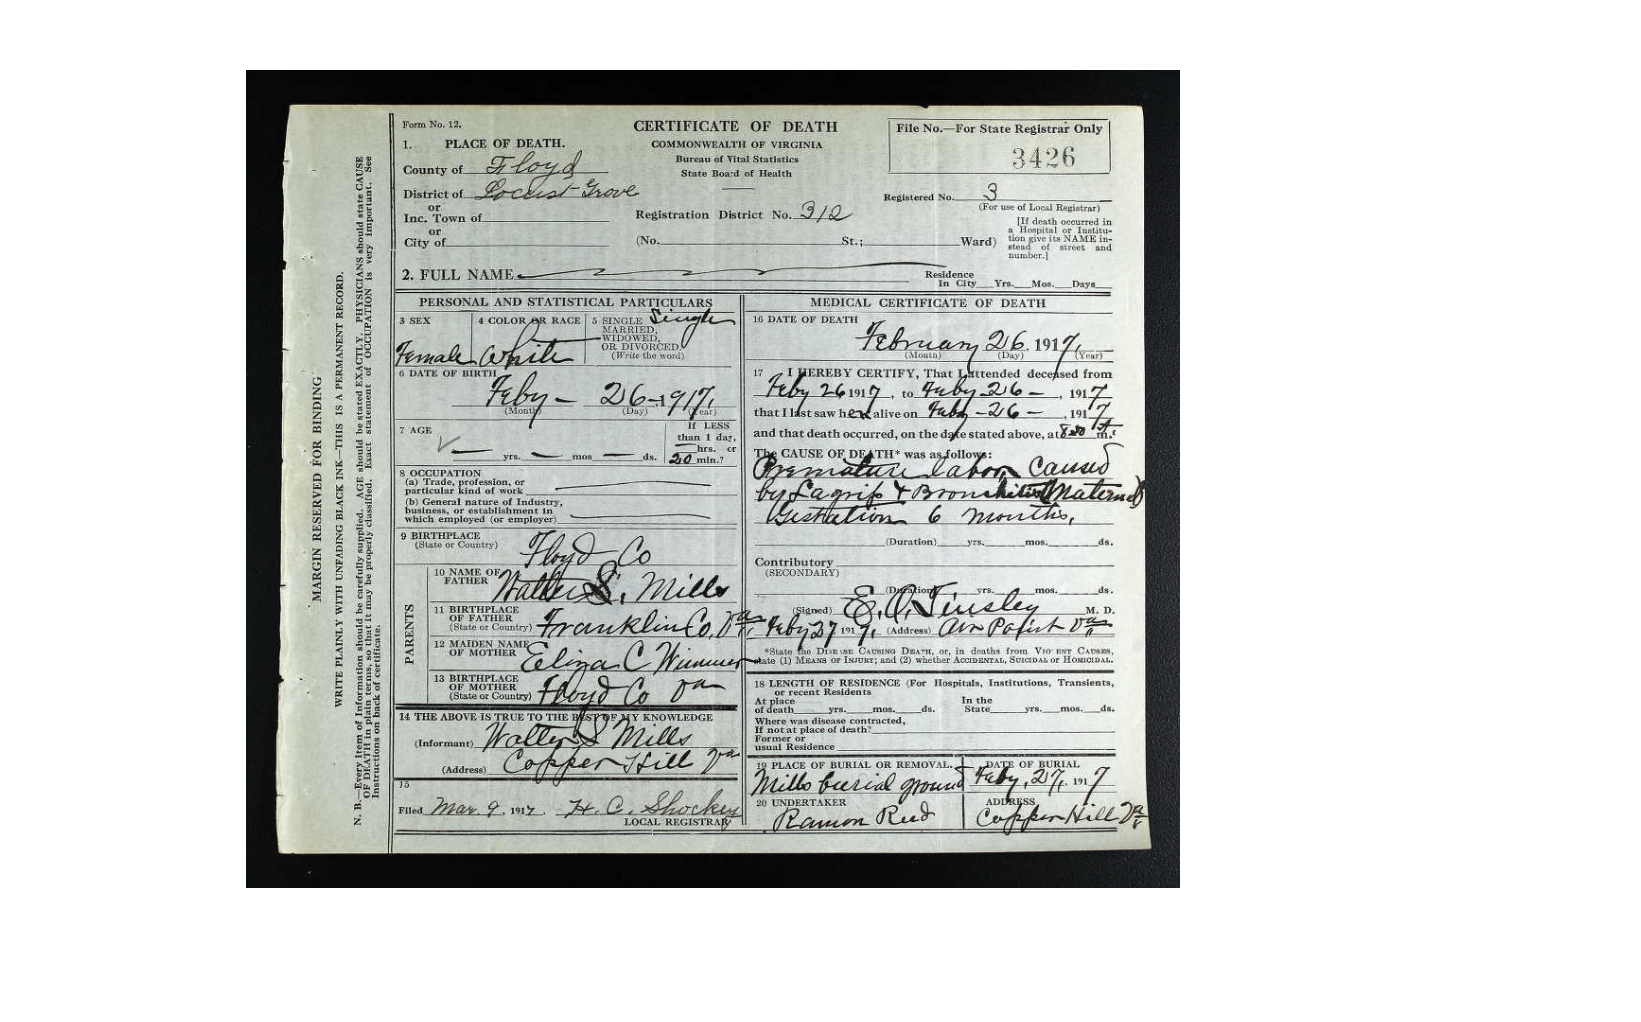 Form No. 12.
CERTIFICATE OF DEATH
COMMONWEALTH OF VIRGINIA
Bureau of Vital Statistics
State Board of Health
File No.—For State Registrar Only
3426
1. PLACE OF DEATH.
County of Floyd
District of Locust Grove
or
Inc. Town of
or
City of
Registration District No. 312
(No. St.; Ward)
Registered No. 3
(For use of Local Registrar)
[If death occurred in
a Hospital or Institu-
tion give its NAME in-
stead of street and
number.]
2. FULL NAME
Residence
In City Yrs. Mos. Days
PERSONAL AND STATISTICAL PARTICULARS
3 SEX
Female
4 COLOR OR RACE
White
5 SINGLE Single
MARRIED,
WIDOWED,
OR DIVORCED.
(Write the word)
6 DATE OF BIRTH
Feby – 26 – 1917,
(Month) (Day) (Year)
7 AGE
yrs. mos ds.
If LESS
than 1 day,
hrs. or
20 min.?
8 OCCUPATION
(a) Trade, profession, or
particular kind of work
(b) General nature of Industry,
business, or establishment in
which employed (or employer)
9 BIRTHPLACE
(State or Country)
Floyd Co
PARENTS
10 NAME OF
FATHER
Walter S. Mills
11 BIRTHPLACE
OF FATHER
(State or Country)
Franklin Co, Va
12 MAIDEN NAME
OF MOTHER
Eliza C Wimmer
13 BIRTHPLACE
OF MOTHER
(State or Country)
Floyd Co Va
14 THE ABOVE IS TRUE TO THE BEST OF MY KNOWLEDGE
(Informant) Walter S Mills
(Address) Copper Hill Va
15
Filed Mar. 9, 1917. H. C. Shockey
LOCAL REGISTRAR
MEDICAL CERTIFICATE OF DEATH
16 DATE OF DEATH
February 26, 1917,
(Month) (Day) (Year)
17 I HEREBY CERTIFY, That I attended deceased from
Feby 26 1917, to Feby-26-, 1917
that I last saw her alive on Feby-26-, 1917
and that death occurred, on the date stated above, at m.
The CAUSE OF DEATH* was as follows:
Premature labor, caused
by Lagrip & Bronchitis (Maternal)
Gestation 6 months,
(Duration) yrs. mos. ds.
Contributory
(SECONDARY)
(Duration) yrs. mos. ds.
(Signed) Tinsley M. D.
Feby 27 1917, (Address) Air Point Va
*State the DISEASE CAUSING DEATH, or, in deaths from VIOLENT CAUSES,
state (1) MEANS OF INJURY; and (2) whether ACCIDENTAL, SUICIDAL or HOMICIDAL.
18 LENGTH OF RESIDENCE (For Hospitals, Institutions, Transients,
or recent Residents
At place In the
of death yrs. mos. ds. State yrs. mos. ds.
Where was disease contracted,
If not at place of death?
Former or
usual Residence
19 PLACE OF BURIAL OR REMOVAL.
Mills burial ground
DATE OF BURIAL
Feby, 27, 1917
20 UNDERTAKER
Ramon Reed
ADDRESS
Copper Hill Va
MARGIN RESERVED FOR BINDING
WRITE PLAINLY WITH UNFADING BLACK INK—THIS IS A PERMANENT RECORD.
N. B.—Every item of Information should be carefully supplied. AGE should be stated EXACTLY. PHYSICIANS should state CAUSE
OF DEATH in plain terms, so that it may be properly classified. Exact statement of OCCUPATION is very important. See
Instructions on back of certificate.